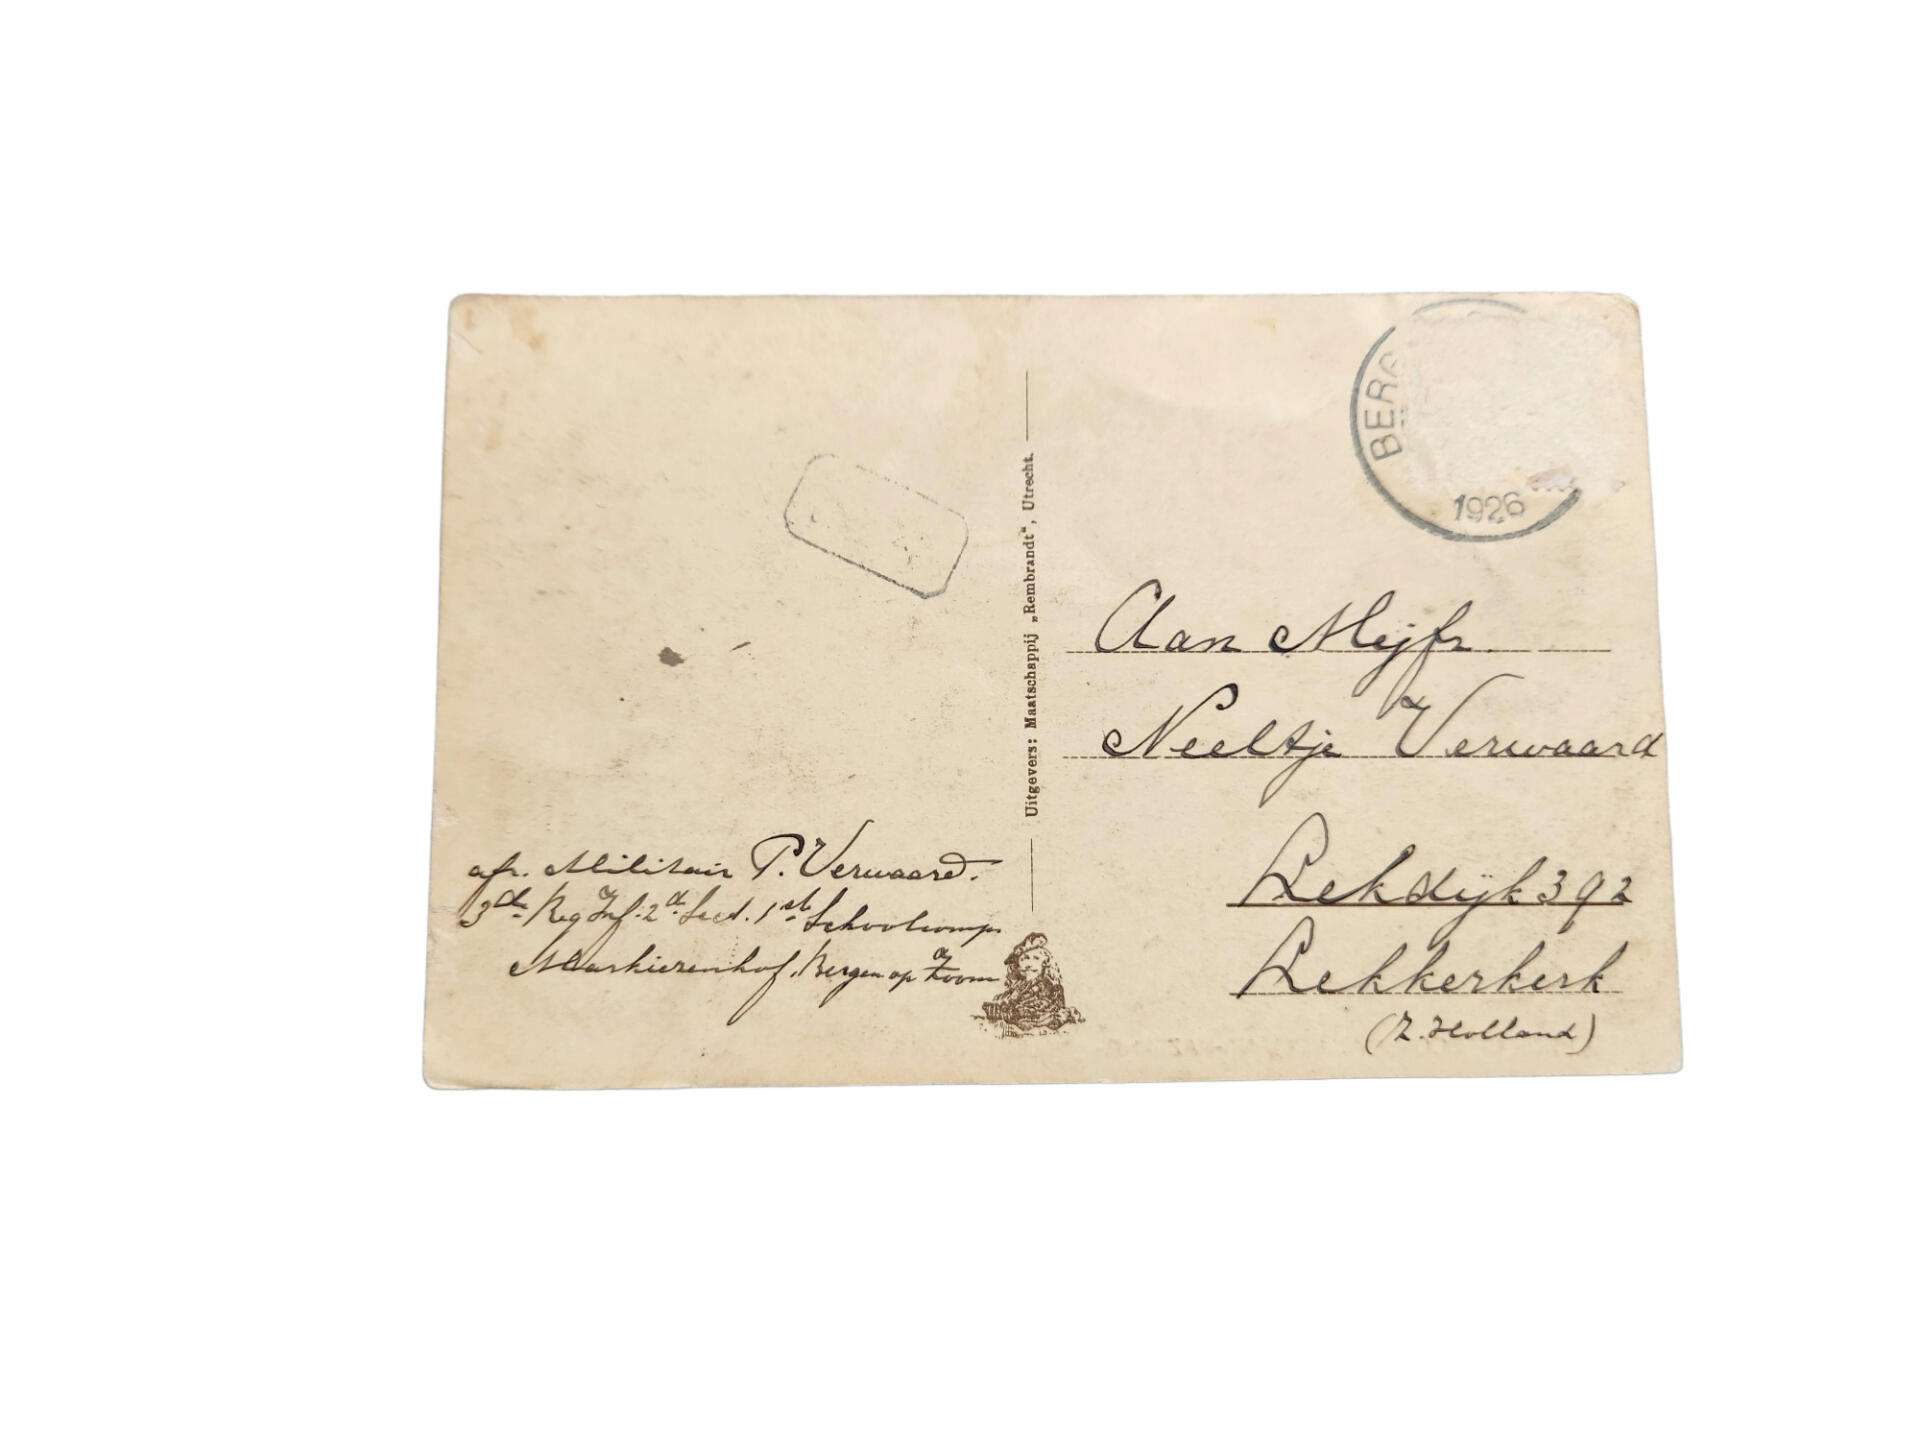 BERG
1926
Aan Mejfr.
Neeltje Verwaard
Lekdijk 392
Lekkerkerk
(Z. Holland)
Uitgevers: Maatschappij „Rembrandt“, Utrecht.
afr. Militair P. Verwaard.
3de Reg Inf. 2d. Sect. 1ste Schoolcomp.
Markiezenhof. Bergen op Zoom